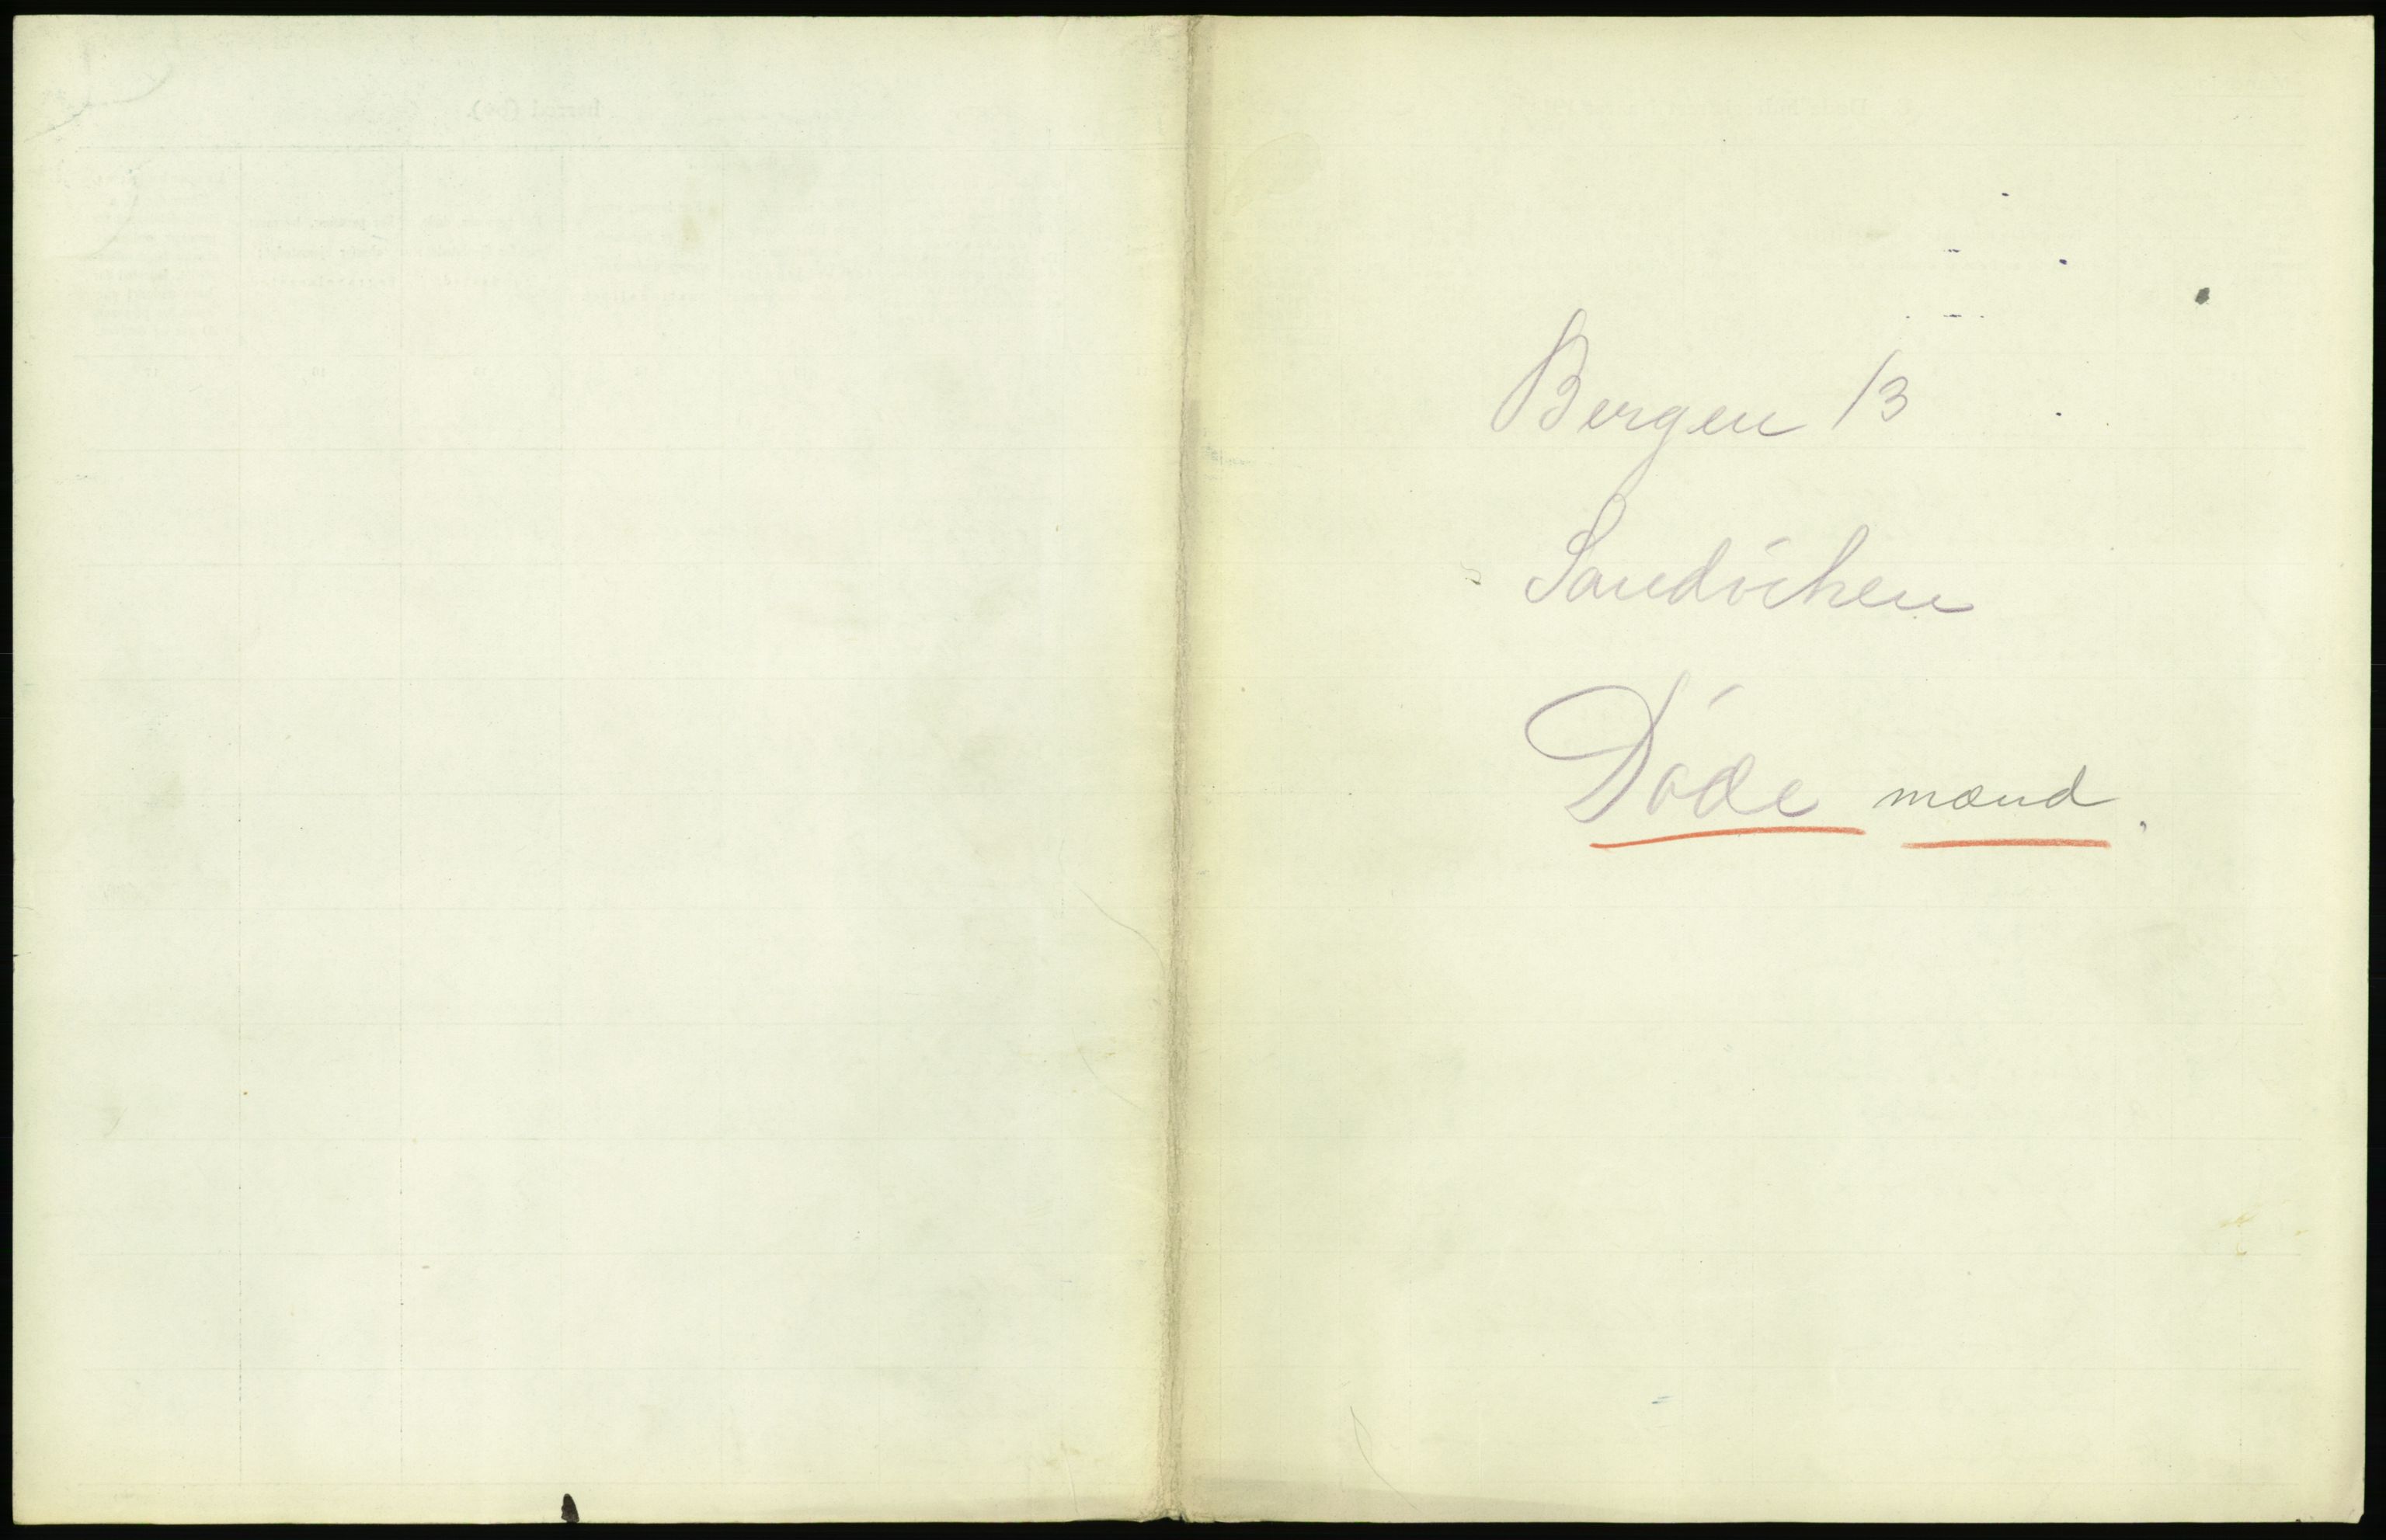 Bergen 13
Sandviken
Døde mænd.